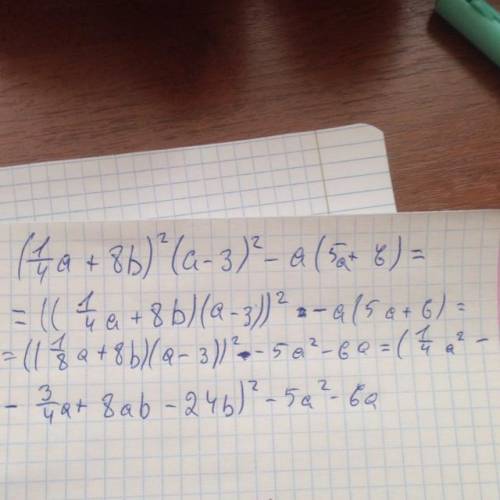 (1/4 a + 8b)² (a - 3)² - a (5a + 6) =
= ((1/4 a + 8b)(a - 3))² - a (5a + 6) =
= ((1/8 a + 8b)(a - 3))² - 5a² - 6a = (1/4 a² -
- 3/4 a + 8ab - 24b)² - 5a² - 6a